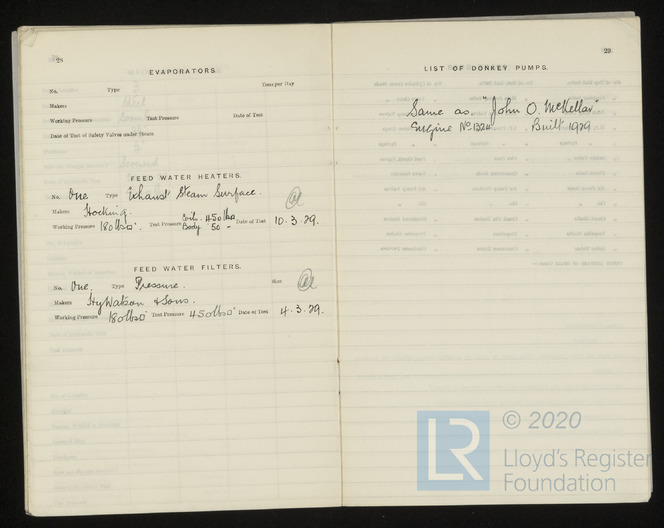 28
EVAPORATORS.
No. Type Tons per Day
Makers
Working Pressure Test Pressure Date of Test
Date of Test of Safety Valves under Steam
FEED WATER HEATERS.
No. One Type Exhaust Steam Surface.
Makers Hocking.
Working Pressure 180lbs□". Test Pressure Coils. 450 lbs Body 50 - Date of Test 10.3.29.
FEED WATER FILTERS.
No. One. Type Pressure. Size
Makers Hy Watson & Sons.
Working Pressure 180lbs□" Test Pressure 450lbs□" Date of Test 4.3.29.
29
LIST OF DONKEY PUMPS.
Same as "John O. McKellar"
Engine No. 1324. Built 1929
© 2020
LR
Lloyd's Register
Foundation